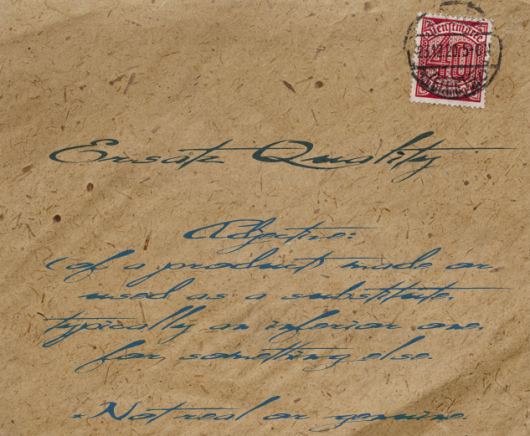 Dienstmarke
40
Ersatz Quality
Adjective:
(of a product) made or
used as a substitute,
typically an inferior one,
for something else.
• Not real or genuine.